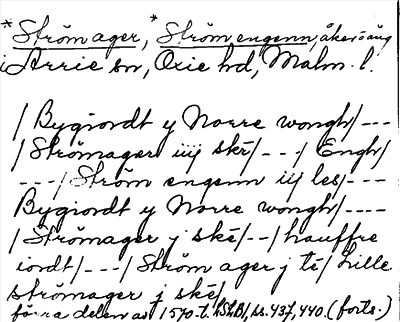 *Strömager, *Strömengenn, åker o. äng
i Arrie sn, Oxie hd, Malm. l.
/Bygiordt y Norre wongh/---
/Strömagerr iiij ske/---/Engh/
---/Ström engenn iij les/---
Bygiordt y Norre wongh/----
/Strömager j ske/--/hauffre
iordt/---/Ström ager j te/Lille
strömager j ske/
förra delen av 1570-t. LSLB1, ss. 437, 440. (forts.)